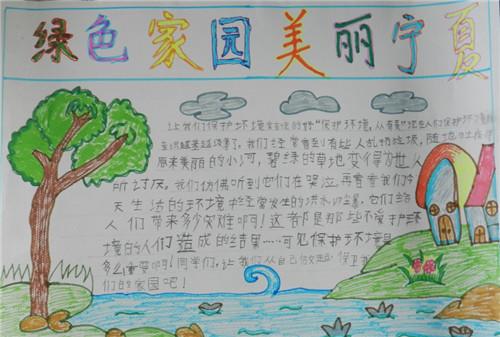 绿色家园美丽宁夏
让我们保护环境 "保护环境,从
我们经常看到有些人乱扔垃圾,随地吐痰
原来美丽的小河,碧绿的草地变得为世人
所讨厌。我们仿佛听到它们在哭泣再看看我们今
天生活的环境 经常发生的洪水 它们给
人们带来多少灾难啊!这都是那些不爱护环
境的人们造成的结果……可见保护环境是
多么重要啊!同学们,让我们从自己做起 保卫
们的家园吧!